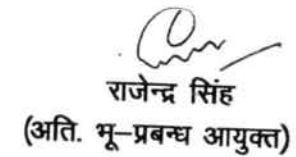 राजेन्द्र सिंह
(अति. भू–प्रबन्ध आयुक्त)